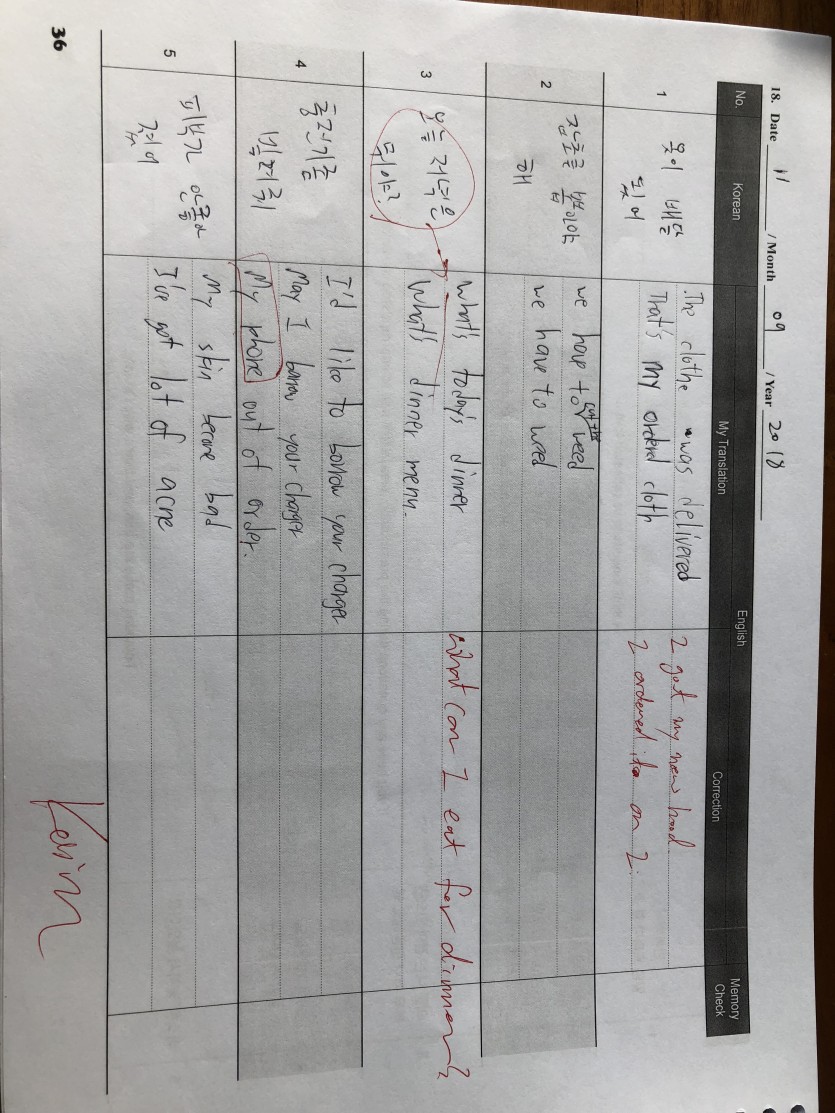 18. Date 11 / Month 09 / Year 2018
No. Korean English Memory Check
My Translation Correction
1
옷이 배달
됬어
The clothe was delivered
That's my ordered cloth
I got my new hood.
I ordered it on 2.
2
잡초를 뽑아야
해
we have to cut the weed
we have to weed
3
오늘 저녁은
뭐야?
What's today's dinner
What's dinner menu.
What can I eat for dinner?
4
충전기좀
빌려줘
I'd like to borrow your charger
May I borrow your charger
My phone out of order.
5
피부가 안좋아
졌어
My skin become bad
I've got lot of acne
Kevin
36